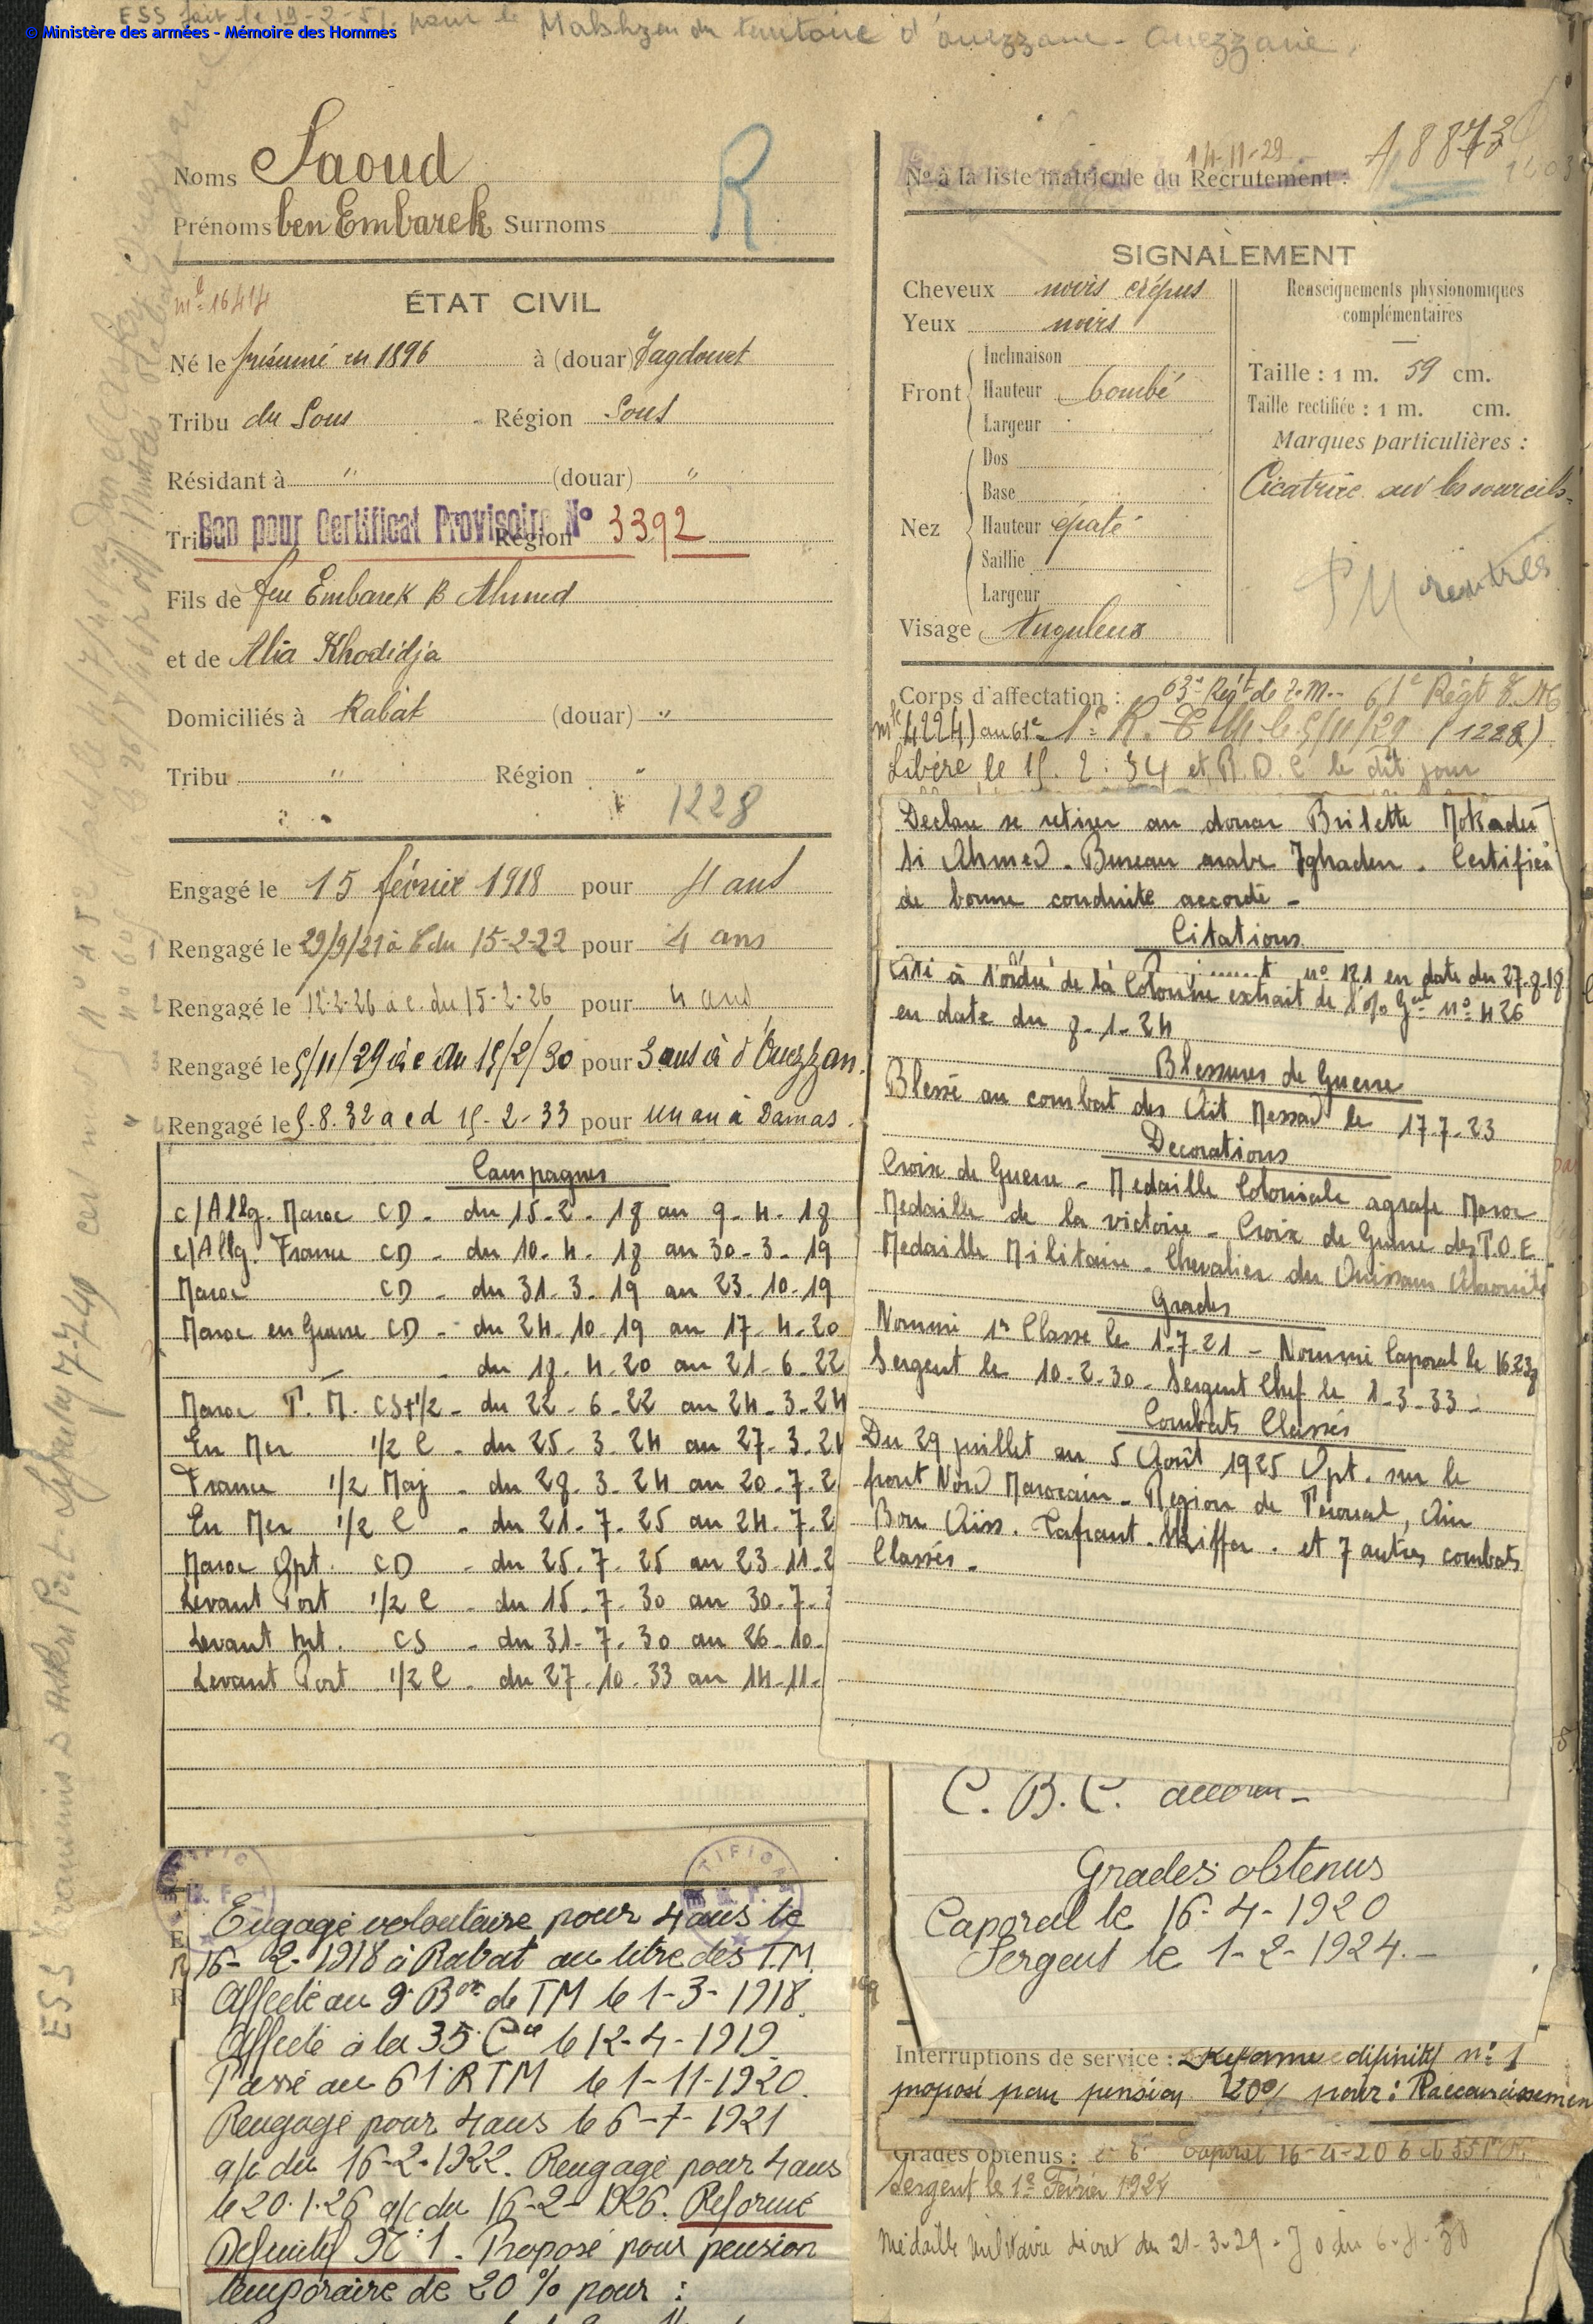 ESS fait le 19-2-51 pour le Makhzen du territoire d'Ouezzane - Ouezzane.
© Ministère des armées - Mémoire des Hommes
Noms Saoud
Prénoms ben Embarek Surnoms
R
mle 16414
ÉTAT CIVIL
Né le présumé en 1896 à (douar) Tagdount
Tribu du Sous Région Sous
Résidant à " (douar) "
Bon pour Certificat Provisoire N° 3392
Tribu Région
Fils de feu Embarek B Ahmed
et de Alia Khodidja
Domiciliés à Rabat (douar) "
Tribu " Région "
1228
Engagé le 15 février 1918 pour 4 ans
1 Rengagé le 29/9/21 à C du 15-2-22 pour 4 ans
2 Rengagé le 12-2-26 à c. du 15-2-26 pour 4 ans
3 Rengagé le 5/11/29 à c du 15/2/30 pour 3 ans à d'Ouezzan.
4 Rengagé le 5-8.32 a c d 15-2-33 pour un an à Damas.
Campagnes
c/Allg. Maroc CD - du 15-2-18 au 9-4-18
c/Allg. France CD - du 10-4-18 au 30-3-19
Maroc CD - du 31-3-19 au 23-10-19
Maroc en Guerre CD - du 24-10-19 au 17-4-20
- du 18-4-20 au 21-6-22
Maroc T. M. CS+1/2 - du 22-6-22 au 24-3-24
En Mer 1/2 C - du 25-3-24 au 27-3-24
France 1/2 Maj - du 28-3-24 au 20-7-2
En Mer 1/2 C - du 21-7-25 au 24-7-2
Maroc Opt. CD - du 25-7-25 au 23-11-2
Levant Port 1/2 C - du 15-7-30 au 30-7-3
Levant Int. CS - du 31-7-30 au 26-10-
Levant Port 1/2 C - du 27-10-33 au 14-11-
Engagé volontaire pour 4 ans le
16-2-1918 à Rabat au titre des T.M.
Affecté au 9e Bon de TM le 1-3-1918.
Affecté à la 35e Cie le 12-4-1919.
Passé au 61e RTM le 1-11-1920.
Rengagé pour 4 ans le 6-7-1921
a/c du 16-2-1922. Rengagé pour 4 ans
le 20.1.26 a/c du 16-2-1926. Réformé
Définitif N°1. Proposé pour pension
temporaire de 20% pour :
14-11-29
N° à la liste matricule du Recrutement : A 8873
SIGNALEMENT
Cheveux noirs crépus
Yeux noirs
Front
Inclinaison
Hauteur bombé
Largeur
Nez
Dos
Base
Hauteur épaté
Saillie
Largeur
Visage Anguleux
Renseignements physionomiques
complémentaires
Taille : 1 m. 59 cm.
Taille rectifiée : 1 m. cm.
Marques particulières :
Cicatrice sur les sourcils
PM rentrés
Corps d'affectation : 63e Régt de T.M. 61e Régt T.M
mle (4224) au 61e 1er R.T.M. le 5/11/29 (1228)
Libéré le 15.2.34 et R.D.C le dit jour
Declare se retirer au douar Brilette Mokadem
Si Ahmed. Bureau arabe Ighaden. Certificat
de bonne conduite accordé -
Citations
Cité à l'ordre de la Colonne extrait de l'O/ Gal n° 426
n° 121 en date du 27-8-18
en date du 8-1-24
Blessures de Guerre
Blessé au combat des Ait Messad le 17.7-23
Decorations
Croix de Guerre - Medaille Coloniale agrafe Maroc
Medaille de la victoire - Croix de Guerre des T.O.E.
Medaille Militaire - Chevalier du Ouissam Alaouite
Grades
Nommé 1re Classe le 1-7-21 - Nommé Caporal le 16.2.28
Sergent le 10-2-30 - Sergent Chef le 1-3-33 -
Combats Classés
Du 29 juillet au 5 Août 1925 Opt. sur le
front Nord Marocain - Region de Teroual, Ain
Bou Aiss. Tafrant. Skiffa. et 7 autres combats
Classés -
C. B. C. accordé -
Grades obtenus
Caporal le 16-4-1920
Sergent le 1-2-1924. -
Interruptions de service : Réforme définitif n° 1
proposé pour pension 20% pour : Raccourcissement
Grades obtenus : Caporal 16-4-20
Sergent le 1er Février 1924
Médaille Militaire décret du 21-3-29 - JO du